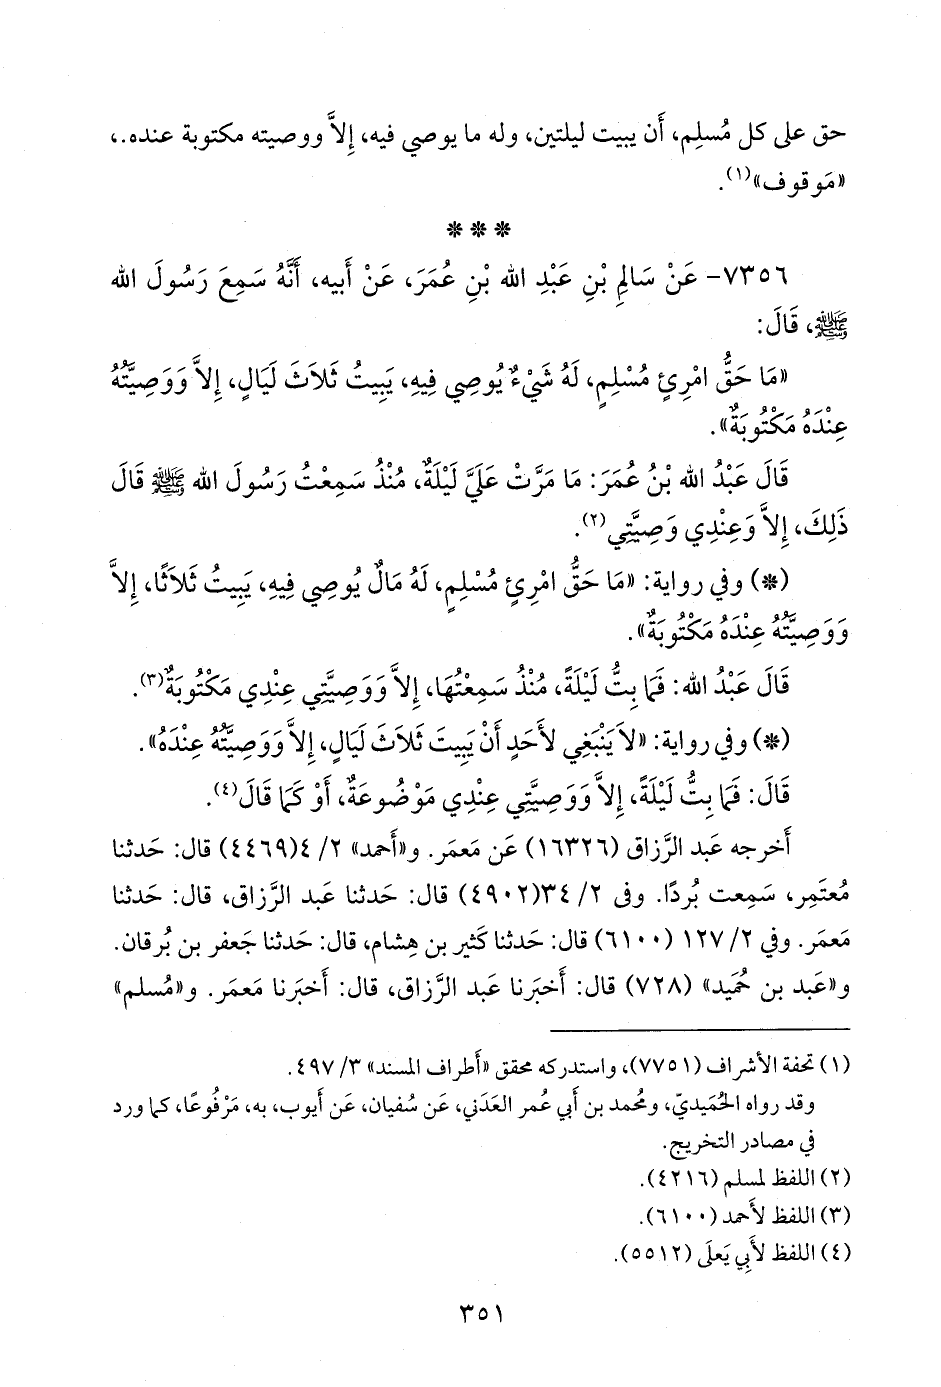 حق على كل مُسلِم، أَن يبيت ليلتين، وله ما يوصي فيه، إِلاَّ ووصيته مكتوبة عنده..،
«مَوقوف»(١).
***
٧٣٥٦- عَنْ سَالِمِ بْنِ عَبْدِ الله بْنِ عُمَرَ، عَنْ أَبيه، أَنَّهُ سَمِعَ رَسُولَ الله
ﷺ، قَالَ:
«مَا حَقُّ امْرِئٍ مُسْلِمٍ، لَهُ شَيْءٌ يُوصِي فِيهِ، يَبِيتُ ثَلاَثَ لَيَالٍ، إِلاَّ وَوَصِيَّتُهُ
عِنْدَهُ مَكْتُوبَةٌ».
قَالَ عَبْدُ الله بْنُ عُمَرَ: مَا مَرَّتْ عَلَيَّ لَيْلَةٌ، مُنْذُ سَمِعْتُ رَسُولَ الله ﷺ قَالَ
ذَلِكَ، إِلاَّ وَعِنْدِي وَصِيَّتِي(٢).
(*) وفي رواية: «مَا حَقُّ امْرِئٍ مُسْلِمٍ، لَهُ مَالٌ يُوصِي فِيهِ، يَبِيتُ ثَلاَثًا، إِلاَّ
وَوَصِيَّتُهُ عِنْدَهُ مَكْتُوبَةٌ».
قَالَ عَبْدُ الله: فَمَا بِتُّ لَيْلَةً، مُنْذُ سَمِعْتُهَا، إِلاَّ وَوَصِيَّتِي عِنْدِي مَكْتُوبَةٌ(٣).
(*) وفي رواية: «لاَ يَنْبَغِي لأَحَدٍ أَنْ يَبِيتَ ثَلاَثَ لَيَالٍ، إِلاَّ وَوَصِيَّتُهُ عِنْدَهُ».
قَالَ: فَمَا بِتُّ لَيْلَةً، إِلاَّ وَوَصِيَّتِي عِنْدِي مَوْضُوعَةٌ، أَوْ كَمَا قَالَ(٤).
أَخرجه عَبد الرَّزاق (١٦٣٢٦) عَن مَعمَر. و«أَحمد» ٢/ ٤(٤٤٦٩) قال: حَدثنا
مُعتَمِر، سَمِعت بُردًا. وفى ٢/ ٣٤(٤٩٠٢) قال: حَدثنا عَبد الرَّزاق، قال: حَدثنا
مَعمَر. وفي ٢/ ١٢٧ (٦١٠٠) قال: حَدثنا كَثير بن هِشام، قال: حَدثنا جَعفر بن بُرقان.
و«عَبد بن حُميد» (٧٢٨) قال: أَخبَرنا عَبد الرَّزاق، قال: أَخبَرنا مَعمَر. و«مُسلم»
(١) تحفة الأشراف (٧٧٥١)، واستدركه محقق «أطراف المسند» ٣/ ٤٩٧.
وقد رواه الحُمَيديّ، ومُحمد بن أَبي عُمر العَدَني، عَن سُفيان، عَن أَيوب، به، مَرْفُوعًا، كما ورد
في مصادر التخريج.
(٢) اللفظ لمسلم (٤٢١٦).
(٣) اللفظ لأَحمد (٦١٠٠).
(٤) اللفظ لأَبي يَعلَى (٥٥١٢).
٣٥١